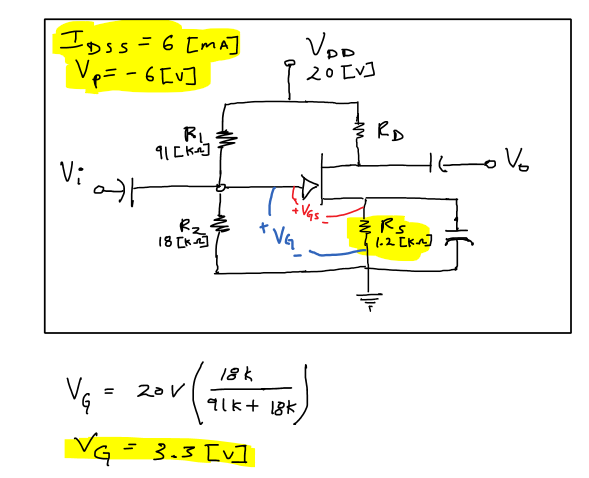 I_DSS = 6 [mA]
V_P = -6 [V]
V_DD
20 [V]
R_1
91 [kΩ]
R_D
V_i
V_o
+ V_GS -
R_2
18 [kΩ]
+ V_G -
R_S
1.2 [kΩ]
V_G = 20V ( 18k / 91k + 18k )
V_G = 3.3 [V]